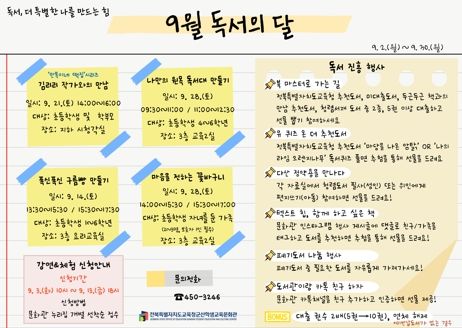 독서, 더 특별한 나를 만드는 힘
9월 독서의 달
9. 2.(월) ~ 9. 30.(월)
'만복이네 떡집'시리즈
김리리 작가와의 만남
일시: 9. 21.(토) 14:00~16:00
대상: 초등학생 및 학부모
장소: 지하 시청각실
나만의 원목 독서대 만들기
일시: 9. 28.(토)
09:30~11:00 / 11:00~12:30
대상: 초등학생 4~6학년
장소: 3층 교육2실
폭신폭신 구름빵 만들기
일시: 9. 14.(토)
13:30~15:30 / 15:30~17:30
대상: 초등학생 1~6학년
장소: 3층 요리교육실
마음을 전하는 꽃바구니
일시: 9. 28.(토)
14:00~15:30 / 15:30~17:00
대상: 초등학생 자녀를 둔 가족
장소: 3층 교육2실
강연&체험 신청안내
신청기간
9. 3.(화) 10시 ~ 9. 13.(금) 18시
신청방법
문화관 누리집 개별 선착순 접수
문의전화
☎450-3246
전북특별자치도교육청군산학생교육문화관
독서 진흥 행사
북 마스터로 가는 길
전북특별자치도교육청 추천도서, 이대출도서, 두근두근 책과의
만남 추천도서, 청렴서재 도서 중 2종, 5권 이상 대출하고
선물 뽑기 참여하세요
유 퀴즈 온 더 추천도서
전북특별자치도교육청 추천도서 '마당을 나온 암탉' OR '나의
라임 오렌지나무' 독서퀴즈 풀면 추첨을 통해 선물을 드려요
다산 정약용을 만나다
각 자료실에서 청렴도서 필사(성인) 또는 위인에게
편지쓰기(아동) 참여하면 선물을 드려요.
텍스트 힙, 함께 하고 싶은 책
문화관 인스타그램 행사 게시글에 댓글로 친구/가족을
태그하고 도서를 추천하면 추첨을 통해 선물을 드려요
폐기도서 나눔 행사
폐기도서 중 필요한 도서를 자유롭게 가져가세요!
도서관이랑 카톡 친구 하자
문화관 카톡채널을 친구 추가하고 인증하면 선물 제공!
BONUS 대출 권수 2배(5권→10권), 연체 해제